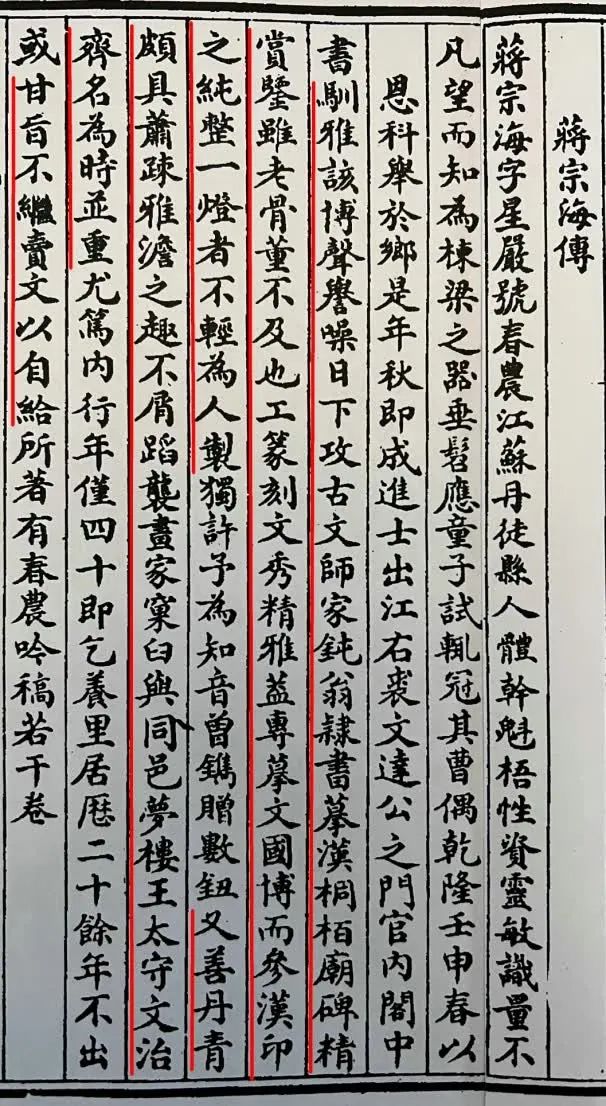 蔣宗海傳
蔣宗海字星嚴號春農江蘇丹徒縣人體幹魁梧性資靈敏識量不
凡望而知為棟梁之器垂髫應童子試輒冠其曹偶乾隆壬申春以
恩科舉於鄉是年秋即成進士出江右裘文達公之門官內閣中
書馴雅該博聲譽噪日下攻古文師家鈍翁隷書摹漢桐栢廟碑精
賞鑒雖老骨董不及也工篆刻文秀精雅葢專摹文國博而參漢印
之純整一燈者不輕為人製獨許予為知音曾鐫贈數鈕又善丹青
頗具蕭疎雅澹之趣不屑蹈襲畫家窠臼與同邑夢樓王太守文治
齊名為時並重尤篤內行年僅四十即乞養里居歷二十餘年不出
或甘旨不繼賣文以自給所著有春農吟稿若干卷